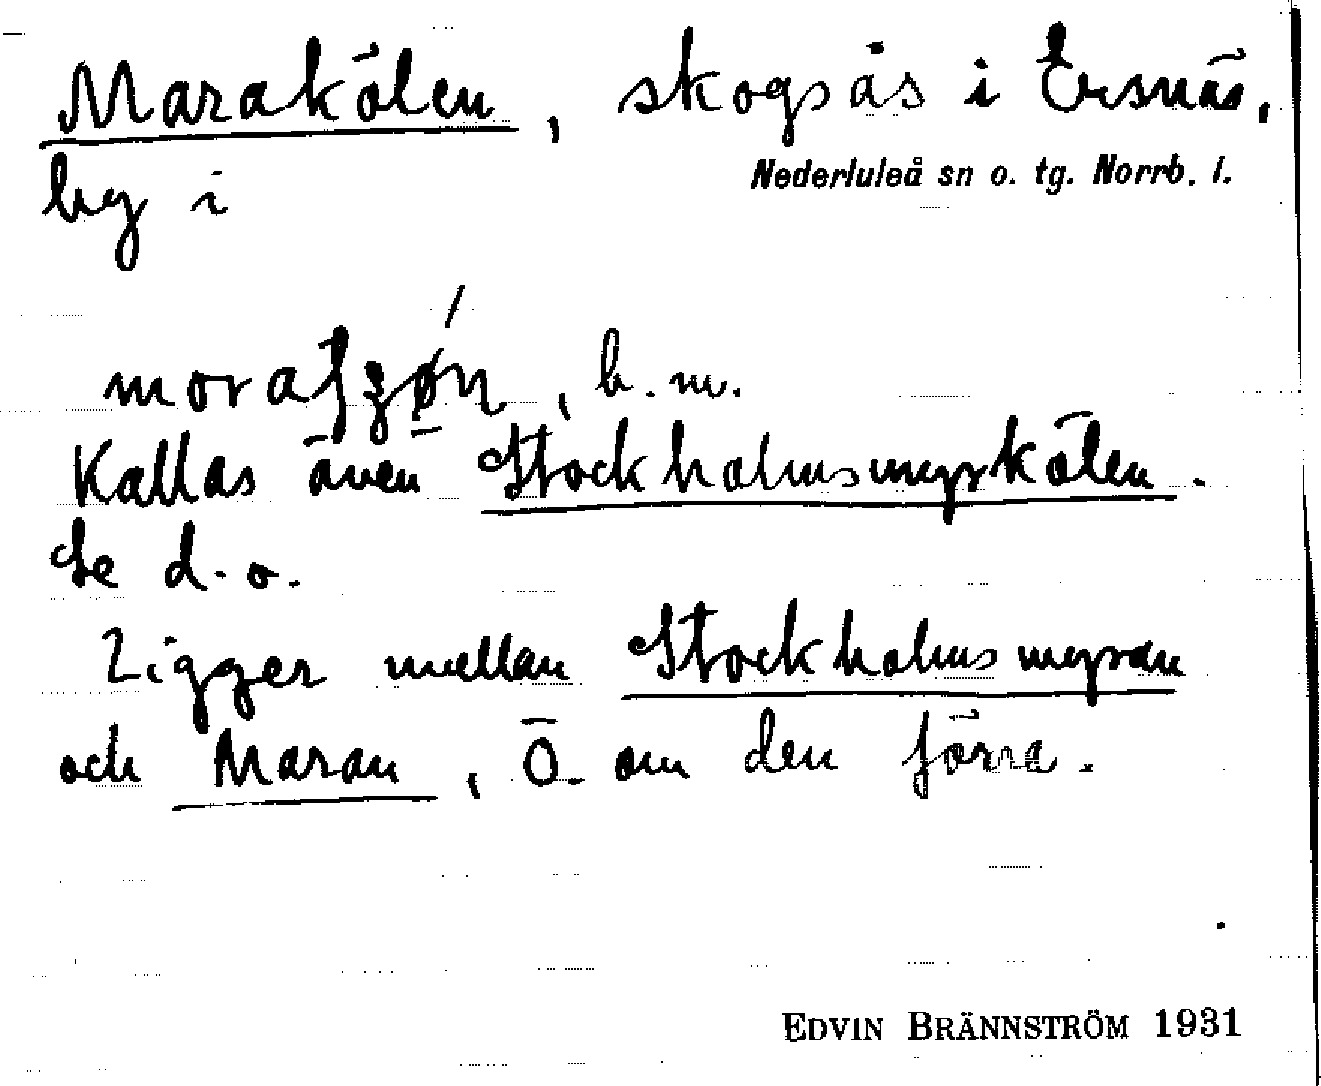 Marakölen, skogsås i Ersnäs,
by i Nederluleå sn o. tg. Norrb. l.
, b. m.
Kallas även Stockholmsmyrkölen.
Se d. o.
Ligger mellan Stockholmsmyran
och Maran, Ö. om den förra.
EDVIN BRÄNNSTRÖM 1931